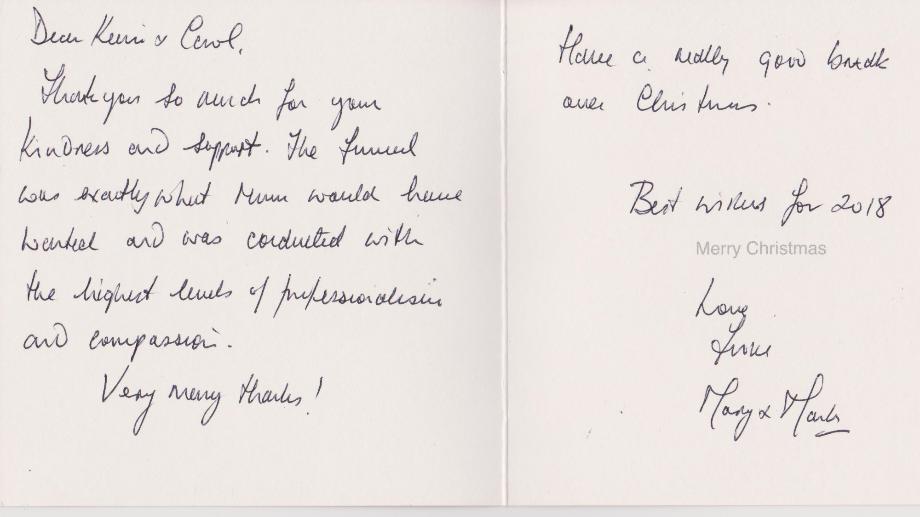 Dear Kevin & Carol,
Thank you so much for your
kindness and support. The funeral
was exactly what Mum would have
wanted and was conducted with
the highest levels of professionalism
and compassion.
Very many thanks!
Have a really good break
over Christmas.
Best wishes for 2018
Merry Christmas
Love
from
Mary & Mark